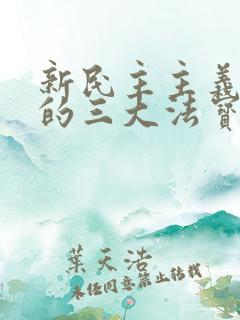 新民主主義
的三大法寶
葉天浩
未經同意禁止轉載